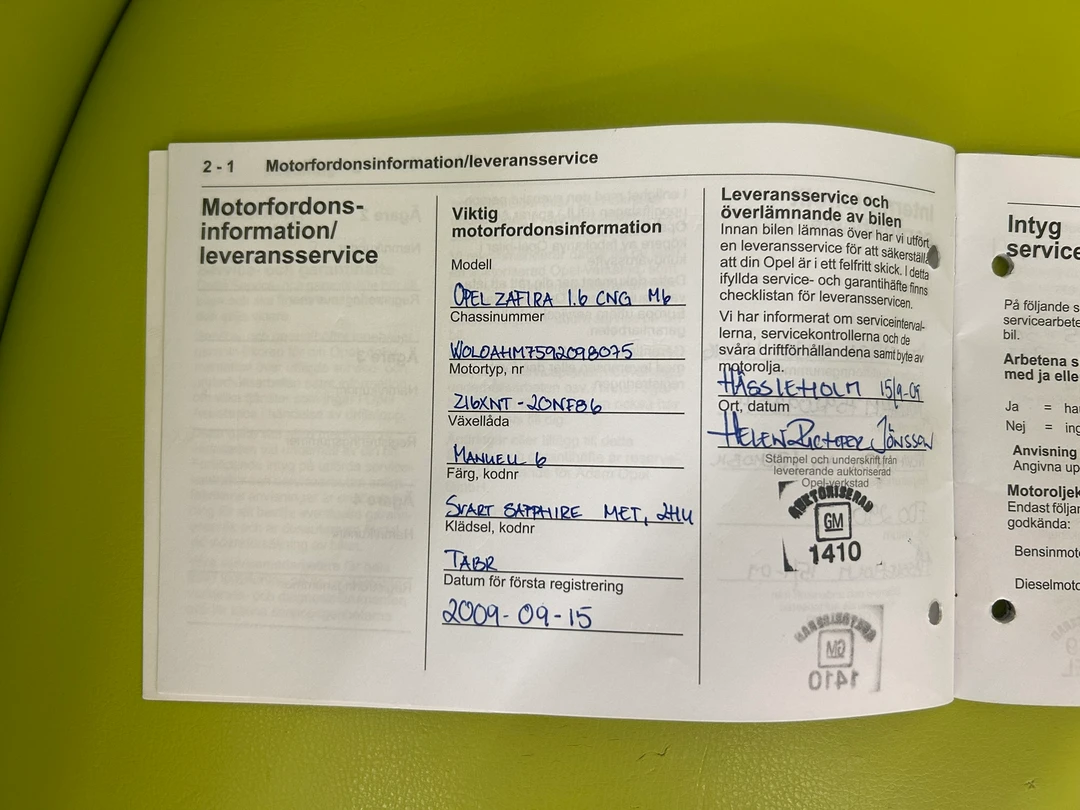 2 - 1 Motorfordonsinformation/leveransservice
Motorfordons-
information/
leveransservice
Viktig
motorfordonsinformation
Modell
OPEL ZAFIRA 1.6 CNG M6
Chassinummer
WOLOAHM7592098075
Motortyp, nr
Z16XNT - 20NF86
Växellåda
MANUELL 6
Färg, kodnr
SVART SAPPHIRE MET, 2HU
Klädsel, kodnr
TABR
Datum för första registrering
2009-09-15
Leveransservice och
överlämnande av bilen
Innan bilen lämnas över har vi utfört
en leveransservice för att säkerställa
att din Opel är i ett felfritt skick. I detta
ifyllda service- och garantihäfte finns
checklistan för leveransservicen.
Vi har informerat om serviceinterval-
lerna, servicekontrollerna och de
svåra driftförhållandena samt byte av
motorolja.
HÄSSLEHOLM 15/9-09
Ort, datum
HELEN JÖNSSON
Stämpel och underskrift från
levererande auktoriserad
Opel-verkstad
AUKTORISERAD
GM
1410
Intyg
service
På följande s
servicearbete
bil.
Arbetena s
med ja eller
Ja = har
Nej = ing
Anvisning
Angivna up
Motoroljek
Endast följar
godkända:
Bensinmoto
Dieselmoto